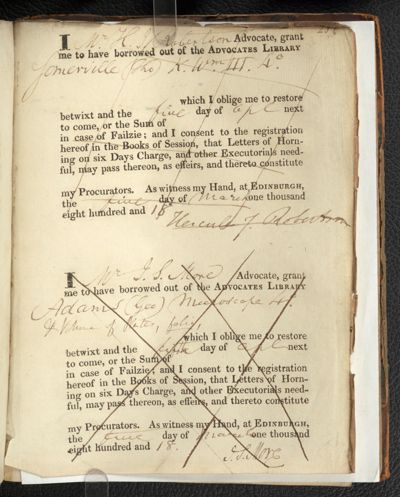 I Mr H. J. Robertson Advocate, grant
me to have borrowed out of the ADVOCATES LIBRARY
Somerville (Tho) K. Wm III. 4o
which I oblige me to restore
betwixt and the five day of apl next
to come, or the Sum of
in case of Failzie; and I consent to the registration
hereof in the Books of Session, that Letters of Horn-
ing on six Days Charge, and other Executorials need-
ful, may pass thereon, as effeirs, and thereto constitute
my Procurators. As witness my Hand, at EDINBURGH,
the five day of March one thousand
eight hundred and 18
Hercules J Robertson
I Mr J. S. More Advocate, grant
me to have borrowed out of the ADVOCATES LIBRARY
Adams (Geo) Microscope 4o.
& folio,
which I oblige me to restore
betwixt and the day of apl next
to come, or the Sum of
in case of Failzie; and I consent to the registration
hereof in the Books of Session, that Letters of Horn-
ing on six Days Charge, and other Executorials need-
ful, may pass thereon, as effeirs, and thereto constitute
my Procurators. As witness my Hand, at EDINBURGH,
the five day of March one thousand
eight hundred and 18.
J. S. More